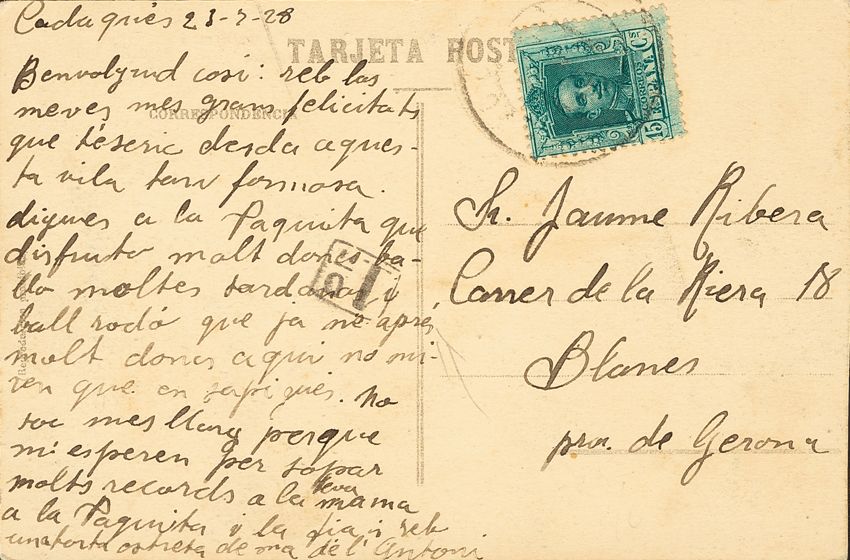 Cadaqués 23-7-28
TARJETA POST
CORRESPONDENCIA
Benvolgud cosi: reb las
meves mes grans felicitats
que t'eseric desda aques-
ta vila tan formosa.
digues a la Paquita que
disfruto molt dones ba-
llo moltes sardanas i
ball rodó que ja ne aprés
molt dones aqui no mi-
ren que en sapigués. No
soc mes llarg perque
mi esperen per sopar
molts records a la teva mama
a la Paquita i la tia i reb
una forta estreta de ma de l'Antoni
Sr. Jaume Ribera
Carrer de la Riera 18
Blanes
prov. de Gerona
ESPAÑA
CORREOS
15 Cs